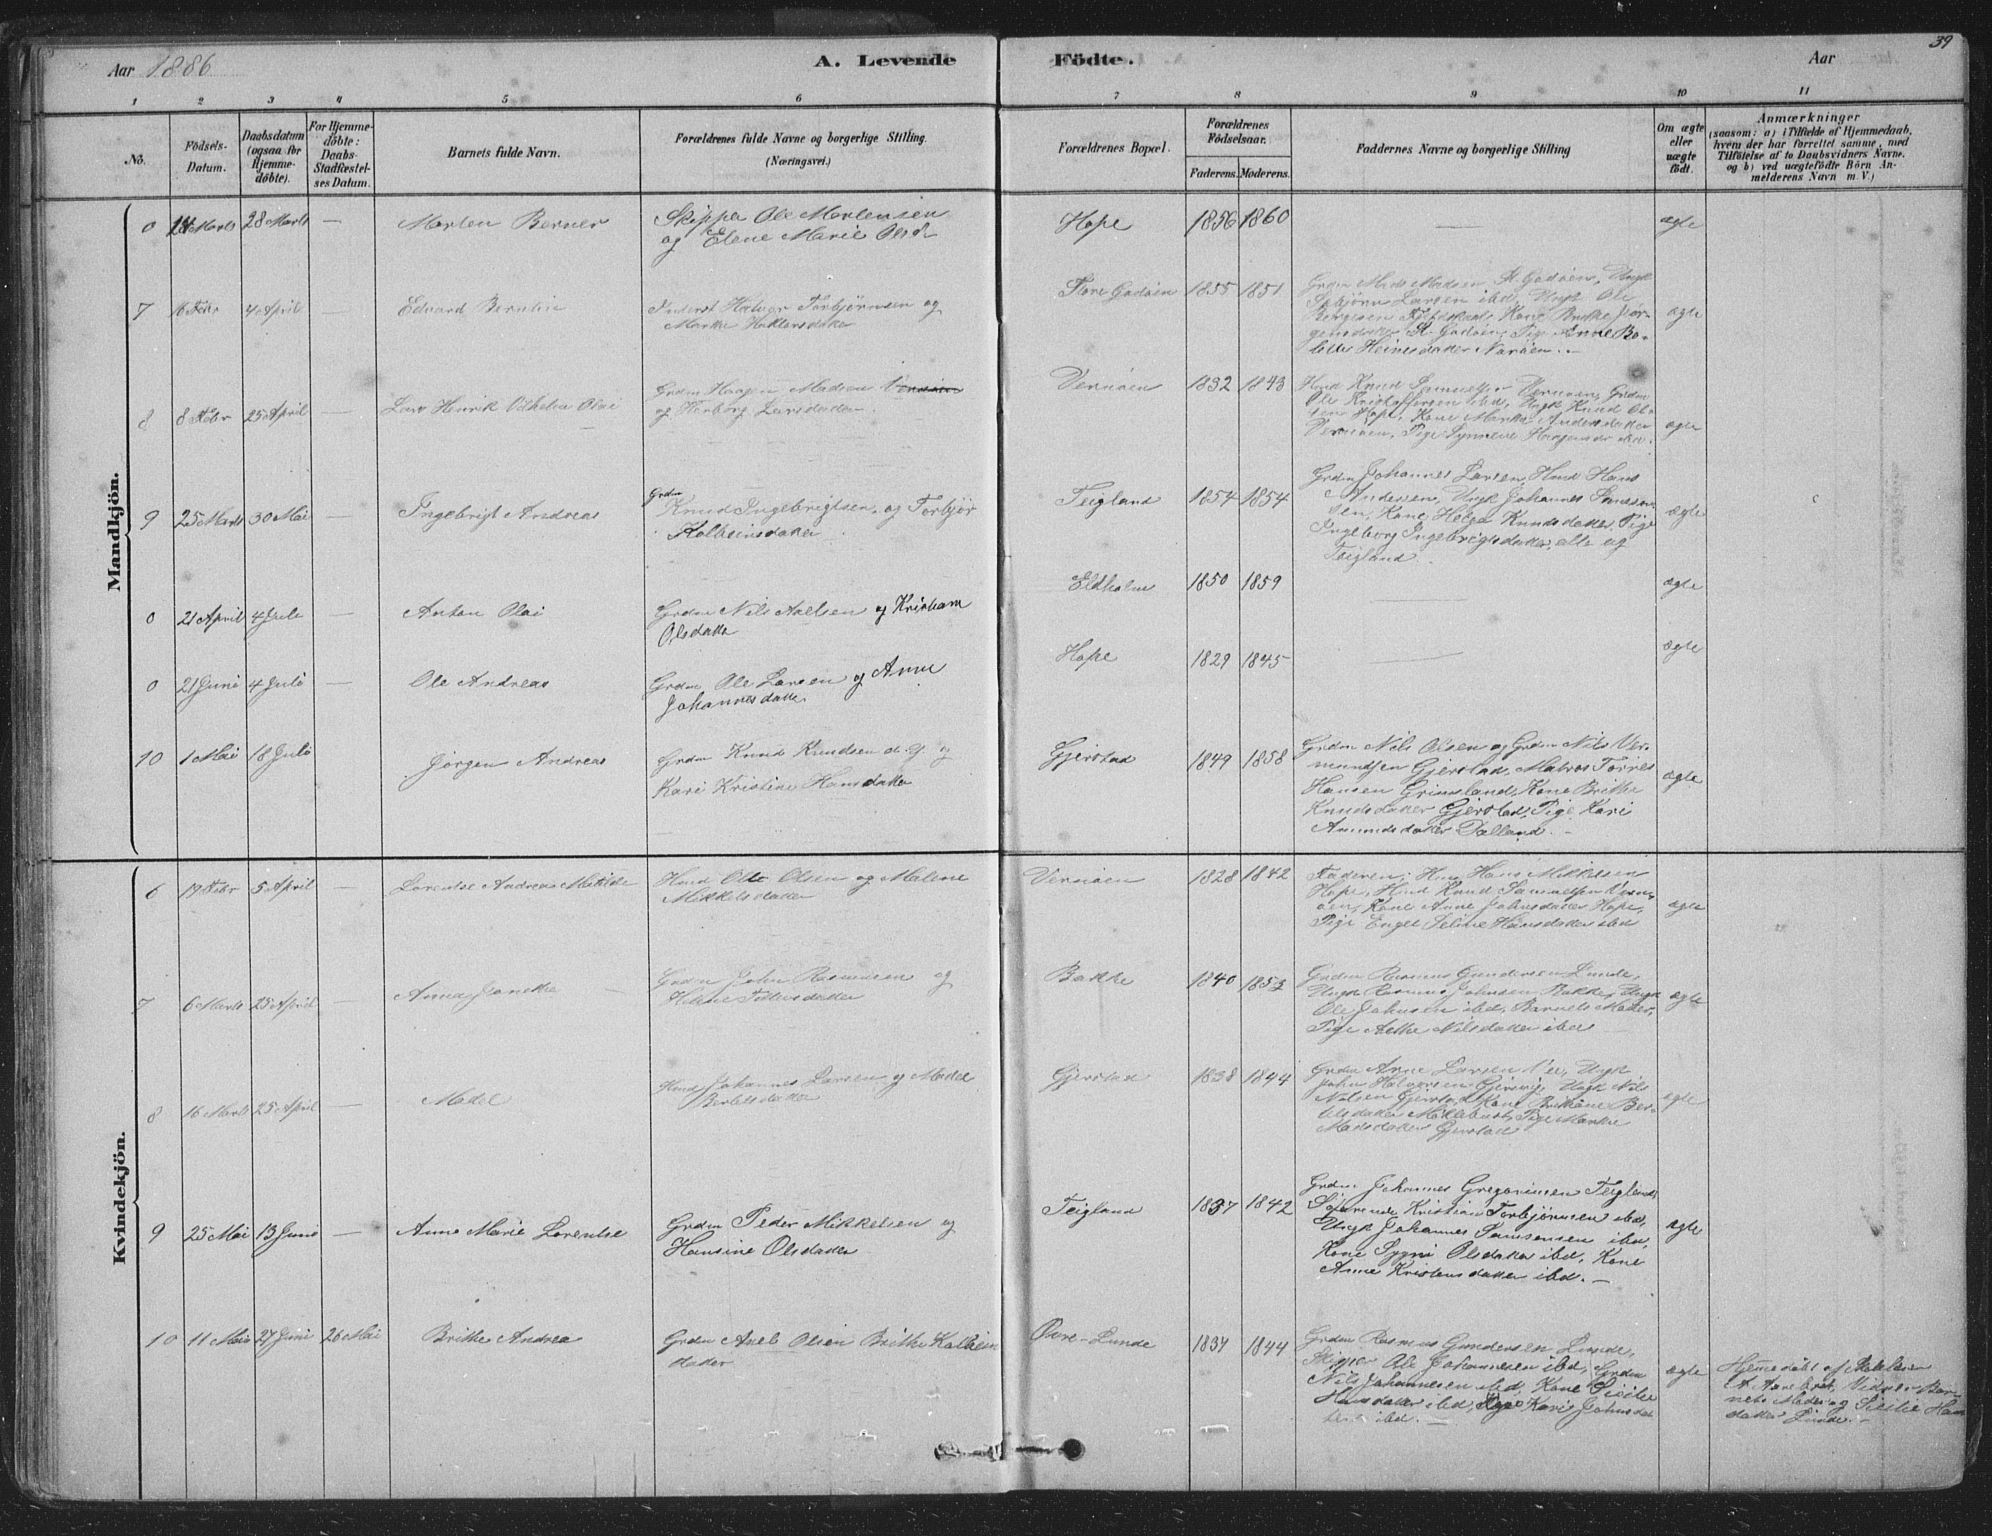 Aar 1886
A. Levende
Födte.
Aar
39
1 2 3 4 5 6 7 8 9 10 11
No.
Födsels-
Datum.
Daabsdatum
(ogsaa for
Hjemme-
döbte).
For Hjemme-
döbte:
Daabs-
Stadfæstel-
ses Datum.
Barnets fulde Navn.
Forældrenes fulde Navne og borgerlige Stilling.
(Næringsvei.)
Forældrenes Bopæl.
Forældrenes
Födselsaar.
Faderens. Moderens.
Faddernes Navne og borgerlige Stilling
Om ægte
eller
uægte
födt.
Anmærkninger
(saasom: a) i Tilfælde af Hjemmedaab,
hvem der har forrettet samme, med
Tilföielse af to Daabsvidners Navne,
og b) ved uægtefödte Börn An-
melderens Navn m. V.)
Mandkjön.
0 Marts 28 Marts — Morten Berner
Skipper Ole Mortensen
og Elene Marie Olsd
Hope 1856 1860 — ægte
7 16 Febr 4 April — Edvard Berntin
Inderst Halvor Torbjörnsen og
Marthe Haktorsdatter
Store Gadöen 1855 1851
Grdm Mads Madsen St. Gadöen, Ungk
Torbjörn Larsen ibd, Ungk Ole
Berntsen, Kone Brithe Jör-
gensdatter St. Gadöen, Pige Anne Bo-
lette Heinesdatter Naröen. —
ægte
8 8 Febr 25 April — Lars Henrik Vilhelm Olai
Grdm Haagen Madsen
og Herborg Larsdatter
Vernöen 1832 1843
Hmd Knud Samuelsen Vernöen, Grdm
Ole Kristoffersen ibd, Ungk Knud Ol-
sen Hope, Kone Marthe Andersdatter
Vernöen, Pige Synneve Haagensdr ibd.
ægte
9 25 Marts 30 Mai — Ingebrigt Andreas
Grdm
Knud Ingebrigtsen og Torbjör
Kolbeinsdatter
Teigland 1854 1854
Grdm Johannes Larsen, Hmd Hans
Andersen, Ungk Johannes Samson-
sen, Kone Helga Knudsdatter, Pige
Ingeborg Ingebrigtsdatter, alle og
Teigland
ægte
0 21 April 4 Juli — Anton Olai
Grdm Nils Axelsen og Kristiane
Olsdatter
Eldholm 1850 1859 — ægte
0 21 Juni 4 Juli — Ole Andreas
Grdm Ole Larsen og Anne
Johannesdatter
Hope 1829 1845 — ægte
10 1 Mai 18 Juli Jörgen Andreas
Grdm Knud Knudsen d. y. og
Kari Kristine Hansdatter
Gjerstad 1849 1858
Grdm Nils Olsen og Grdm Nils Ver-
mundsen Gjerstad, Matros Torres
Hansen Grimsland, Kone Brithe
Knudsdatter Gjerstad, Pige Kari
Amundsdatter Dalland. —
ægte
Kvindekjön.
6 17 Febr 5 April — Lorentse Andrea Matilde
Hmd Ole Olsen og Malene
Mikkelsdatter
Vernöen 1828 1842
Faderen, Hmd Hans Mikkelsen
Hope, Hmd Knud Samuelsen Vern-
öen, Kone Anne Johnsdatter Hope,
Pige Engel Seline Hansdatter ibd
ægte
7 6 Marts 25 April — Anna Janikke
Grdm John Rasmusen og
Helene
Bakke 1840 1853
Grdm Rasmus Gundersen Lunde,
Ungk Rasmus Johnsen Bakke, Ungk
Ole Johnsen ibd, Barnets Moder,
Pige Nilsdatter ibd
ægte
8 16 Marts 25 April — Madel
Hmd Johannes Larsen og Madel
Bertelsdatter
Gjerstad 1838 1844
Grdm Arne Larsen, Ungk
John Halvorsen Gjersvig, Ungk Nils
Nilsen Gjerstad, Kone Brithe Ber-
telsdatter Möklebust, Pige Marthe
Madsdatter Gjerstad
ægte
9 25 Mai 13 Juni — Anne Marie Lorentse
Grdm Peder Mikkelsen og
Hansine Olsdatter
Teigland 1837 1842
Grdm Johannes Gregoriusen Teigland,
Kristian Torbjörnsen ibd,
Ungk Johannes Samsonsen ibd,
Kone Sygni Olsdatter ibd, Kone
Anne Kristensdatter ibd. —
ægte
10 11 Mai 27 Juni 26 Mai Brithe Andrea
Grdm Axel Olsen Brithe Kolbein
datter
Övre-Lunde 1834 1844
Grdm Rasmus Gundersen Lunde,
Skipper Ole Johannesen ibd, Grdm
Nils Johannesen ibd, Kone Sisilie
Hansdatter ibd, Pige Kari Johnsdat
ter ibd. —
ægte
Hjemedöbt af
Vidner Bar-
nets Moder og Sisilie Hans
datter Lunde. —